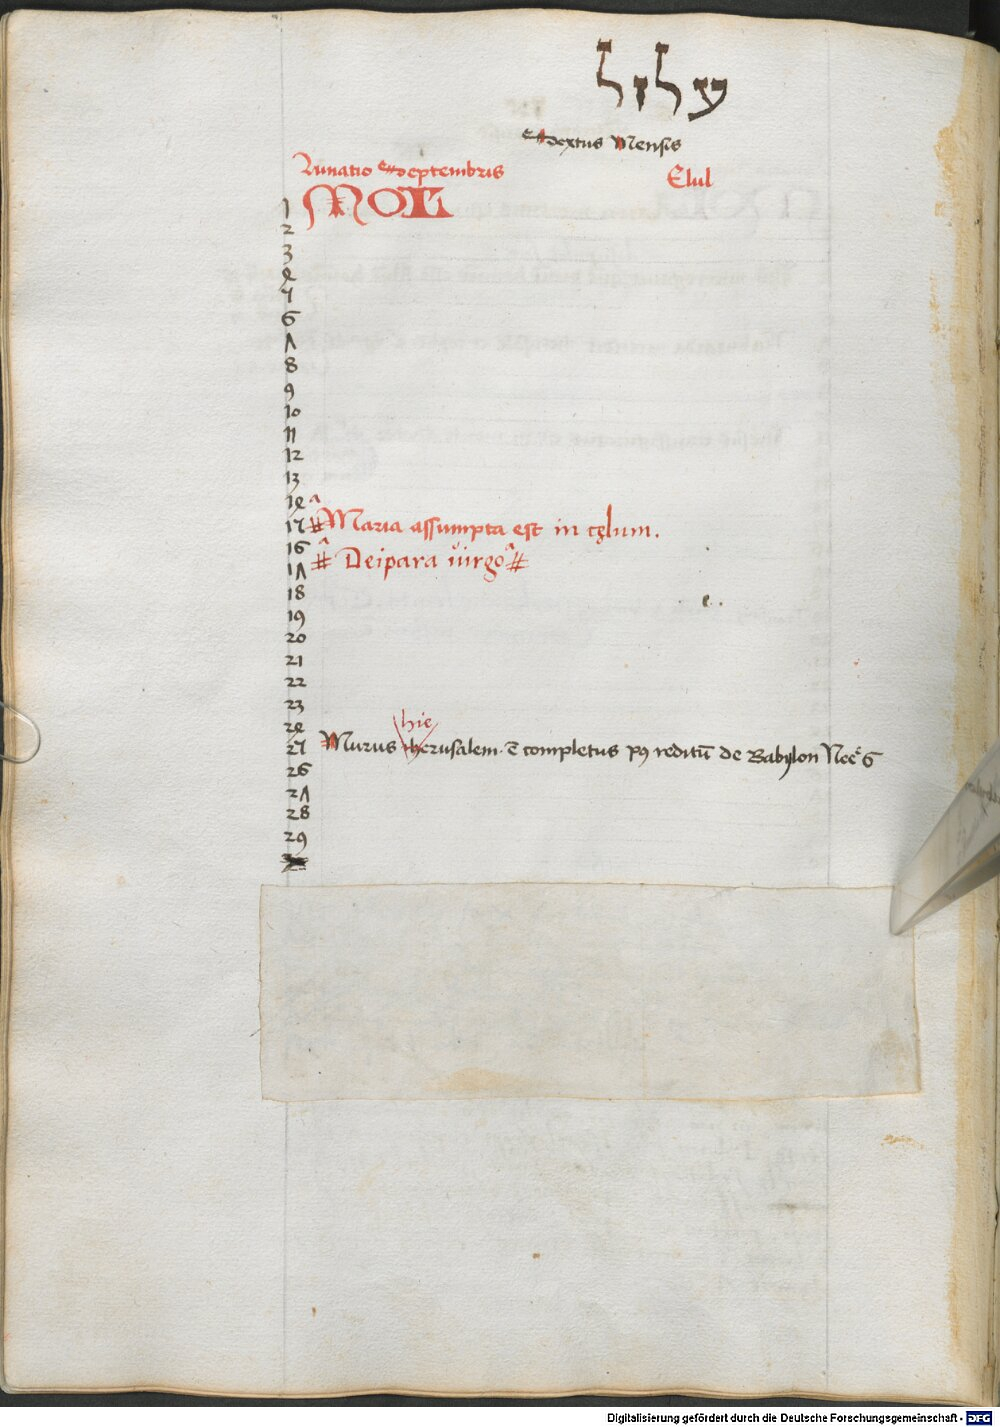 עלול
Sextus Mensis
Lunatio Septembris Elul
1 MOL
2
3
4
5
6
7
8
9
10
11
12
13
14
15 # Maria assumpta est in cęlum.
16 # Deipara virgo #
17
18
19
20
21
22
23
24
hie
25 Murus iherusalem. ē completus pꝰ reditū de Babylon Neē 6
26
27
28
29
Digitalisierung gefördert durch die Deutsche Forschungsgemeinschaft - DFG